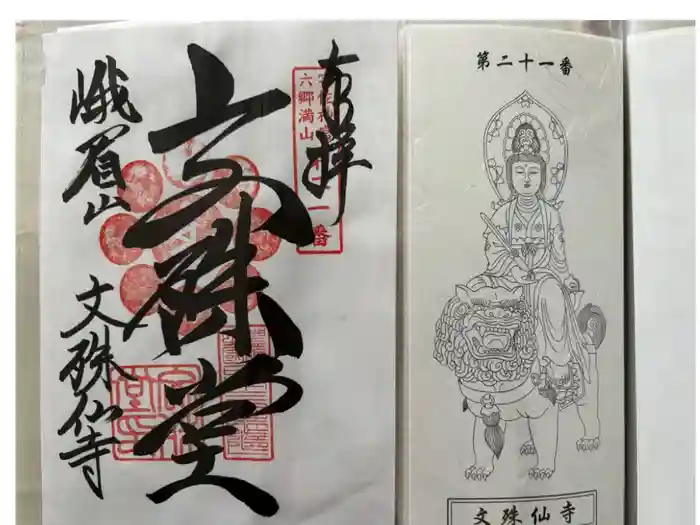 奉拝
六郷満山
文殊堂
峨眉山
文殊仙寺
第二十一番
文殊仙寺